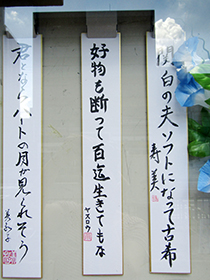 関白の夫ソフトになって古希
寿美
好物も断って百迄生きてもな
ヤスロウ
君となら八ートの月が見られそう